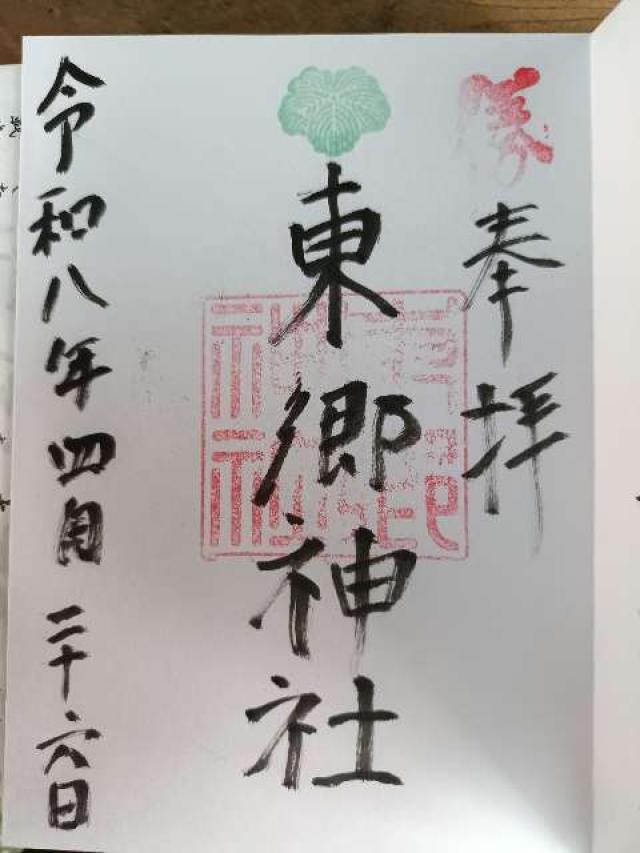 勝
奉拝
東郷神社
令和八年四月二十六日